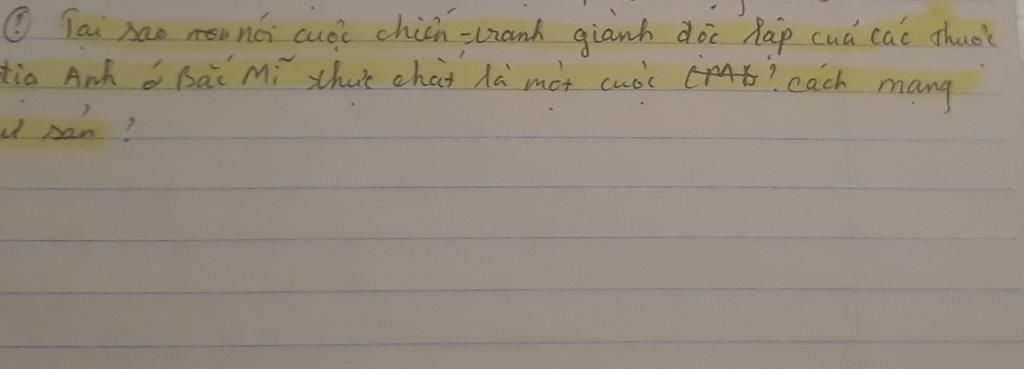 ① Tại sao nói cuộc chiến tranh giành độc lập của các thuộc
địa Anh ở Bắc Mĩ thực chất là một cuộc cách mạng
tư sản ?